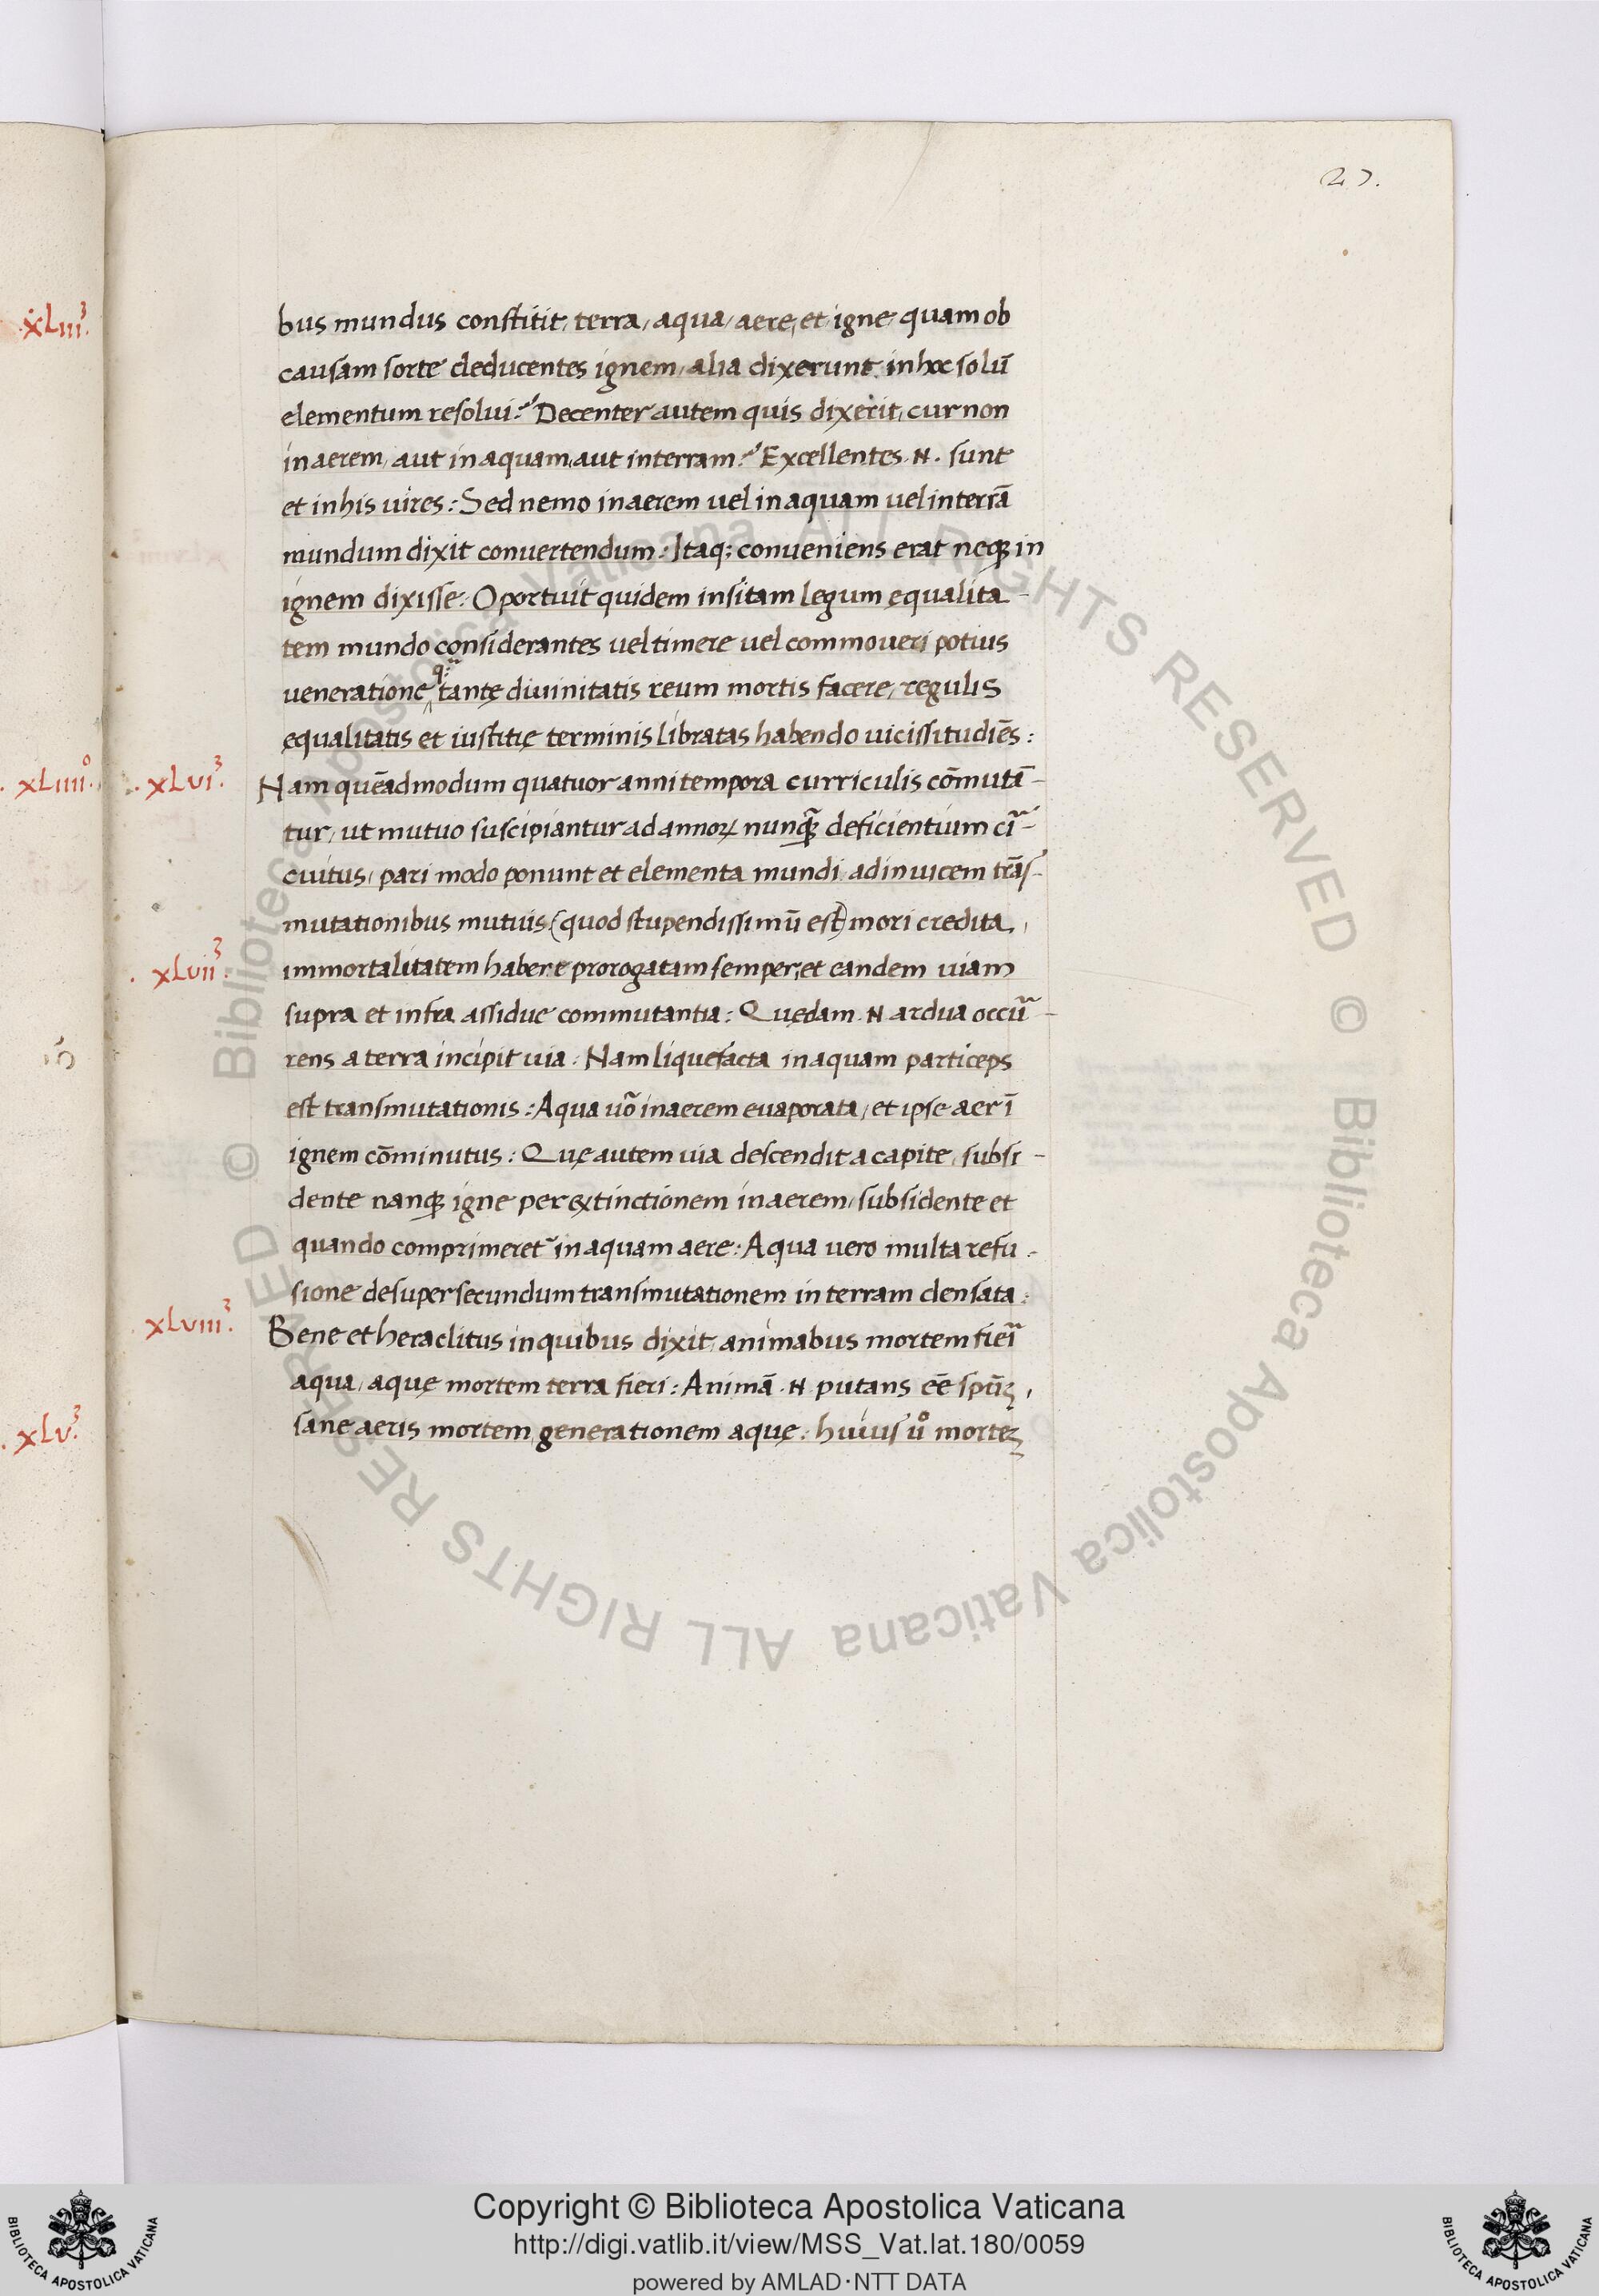 27.
bus mundus constitit, terra, aqua, aere, et igne, quam ob
causam sorte deducentes ignem, alia dixerunt in hoc solū
elementum resolui? Decenter autem quis dixerit, cur non
in aerem, aut in aquam, aut in terram? Excellentes .N. sunt
et in his uires: Sed nemo in aerem uel in aquam uel in terrā
mundum dixit conuertendum: Itaq; conueniens erat neqȝ in
ignem dixisse: Oportuit quidem insitam legum ęqualita-
tem mundo considerantes uel timere uel commoueri potius
ueneratione tantę diuinitatis reum mortis facere, regulis
ęqualitatis et iustitię terminis libratas habendo uicissitudiēs:
. xLvi³.
Nam quēadmodum quatuor anni tempora curriculis cōmutā-
tur, ut mutuo suscipiantur ad annoꝝ nunqȝ̃ deficientium ci᷑-
cuitus, pari modo ponunt et elementa mundi ad inuicem trās-
mutationibus mutuis (quod stupendissimū est) mori credita,
. xLvii³.
immortalitatem habere prorogatam semper, et eandem uiam
supra et infra assidue commutantia: Quędam .N ardua occu᷑-
rens a terra incipit uia: Nam liquefacta in aquam particeps
est transmutationis: Aqua uō in aerem euaporata, et ipse aer ī
ignem cōminutus: Quę autem uia descendit a capite, subsi-
dente nanqȝ igne per extinctionem in aerem, subsidente et
quando comprimeret᷑ in aquam aere: Aqua uero multa refu-
sione desuper secundum transmutationem in terram densata:
xLviii³.
Bene et heraclitus in quibus dixit, animabus mortem fie᷑i
aqua, aquę mortem terra fieri: Animā .N. putans eē̄ spūȝ,
sane aeris mortem generationem aquę: huius uº morteȝ
.xLiii³.
. xLiiiiº.
. xLv³.
© Biblioteca Apostolica Vaticana ALL RIGHTS RESERVED © Biblioteca Apostolica Vaticana ALL RIGHTS RESERVED
Copyright © Biblioteca Apostolica Vaticana
http://digi.vatlib.it/view/MSS_Vat.lat.180/0059
powered by AMLAD·NTT DATA
BIBLIOTECA APOSTOLICA VATICANA
BIBLIOTECA APOSTOLICA VATICANA